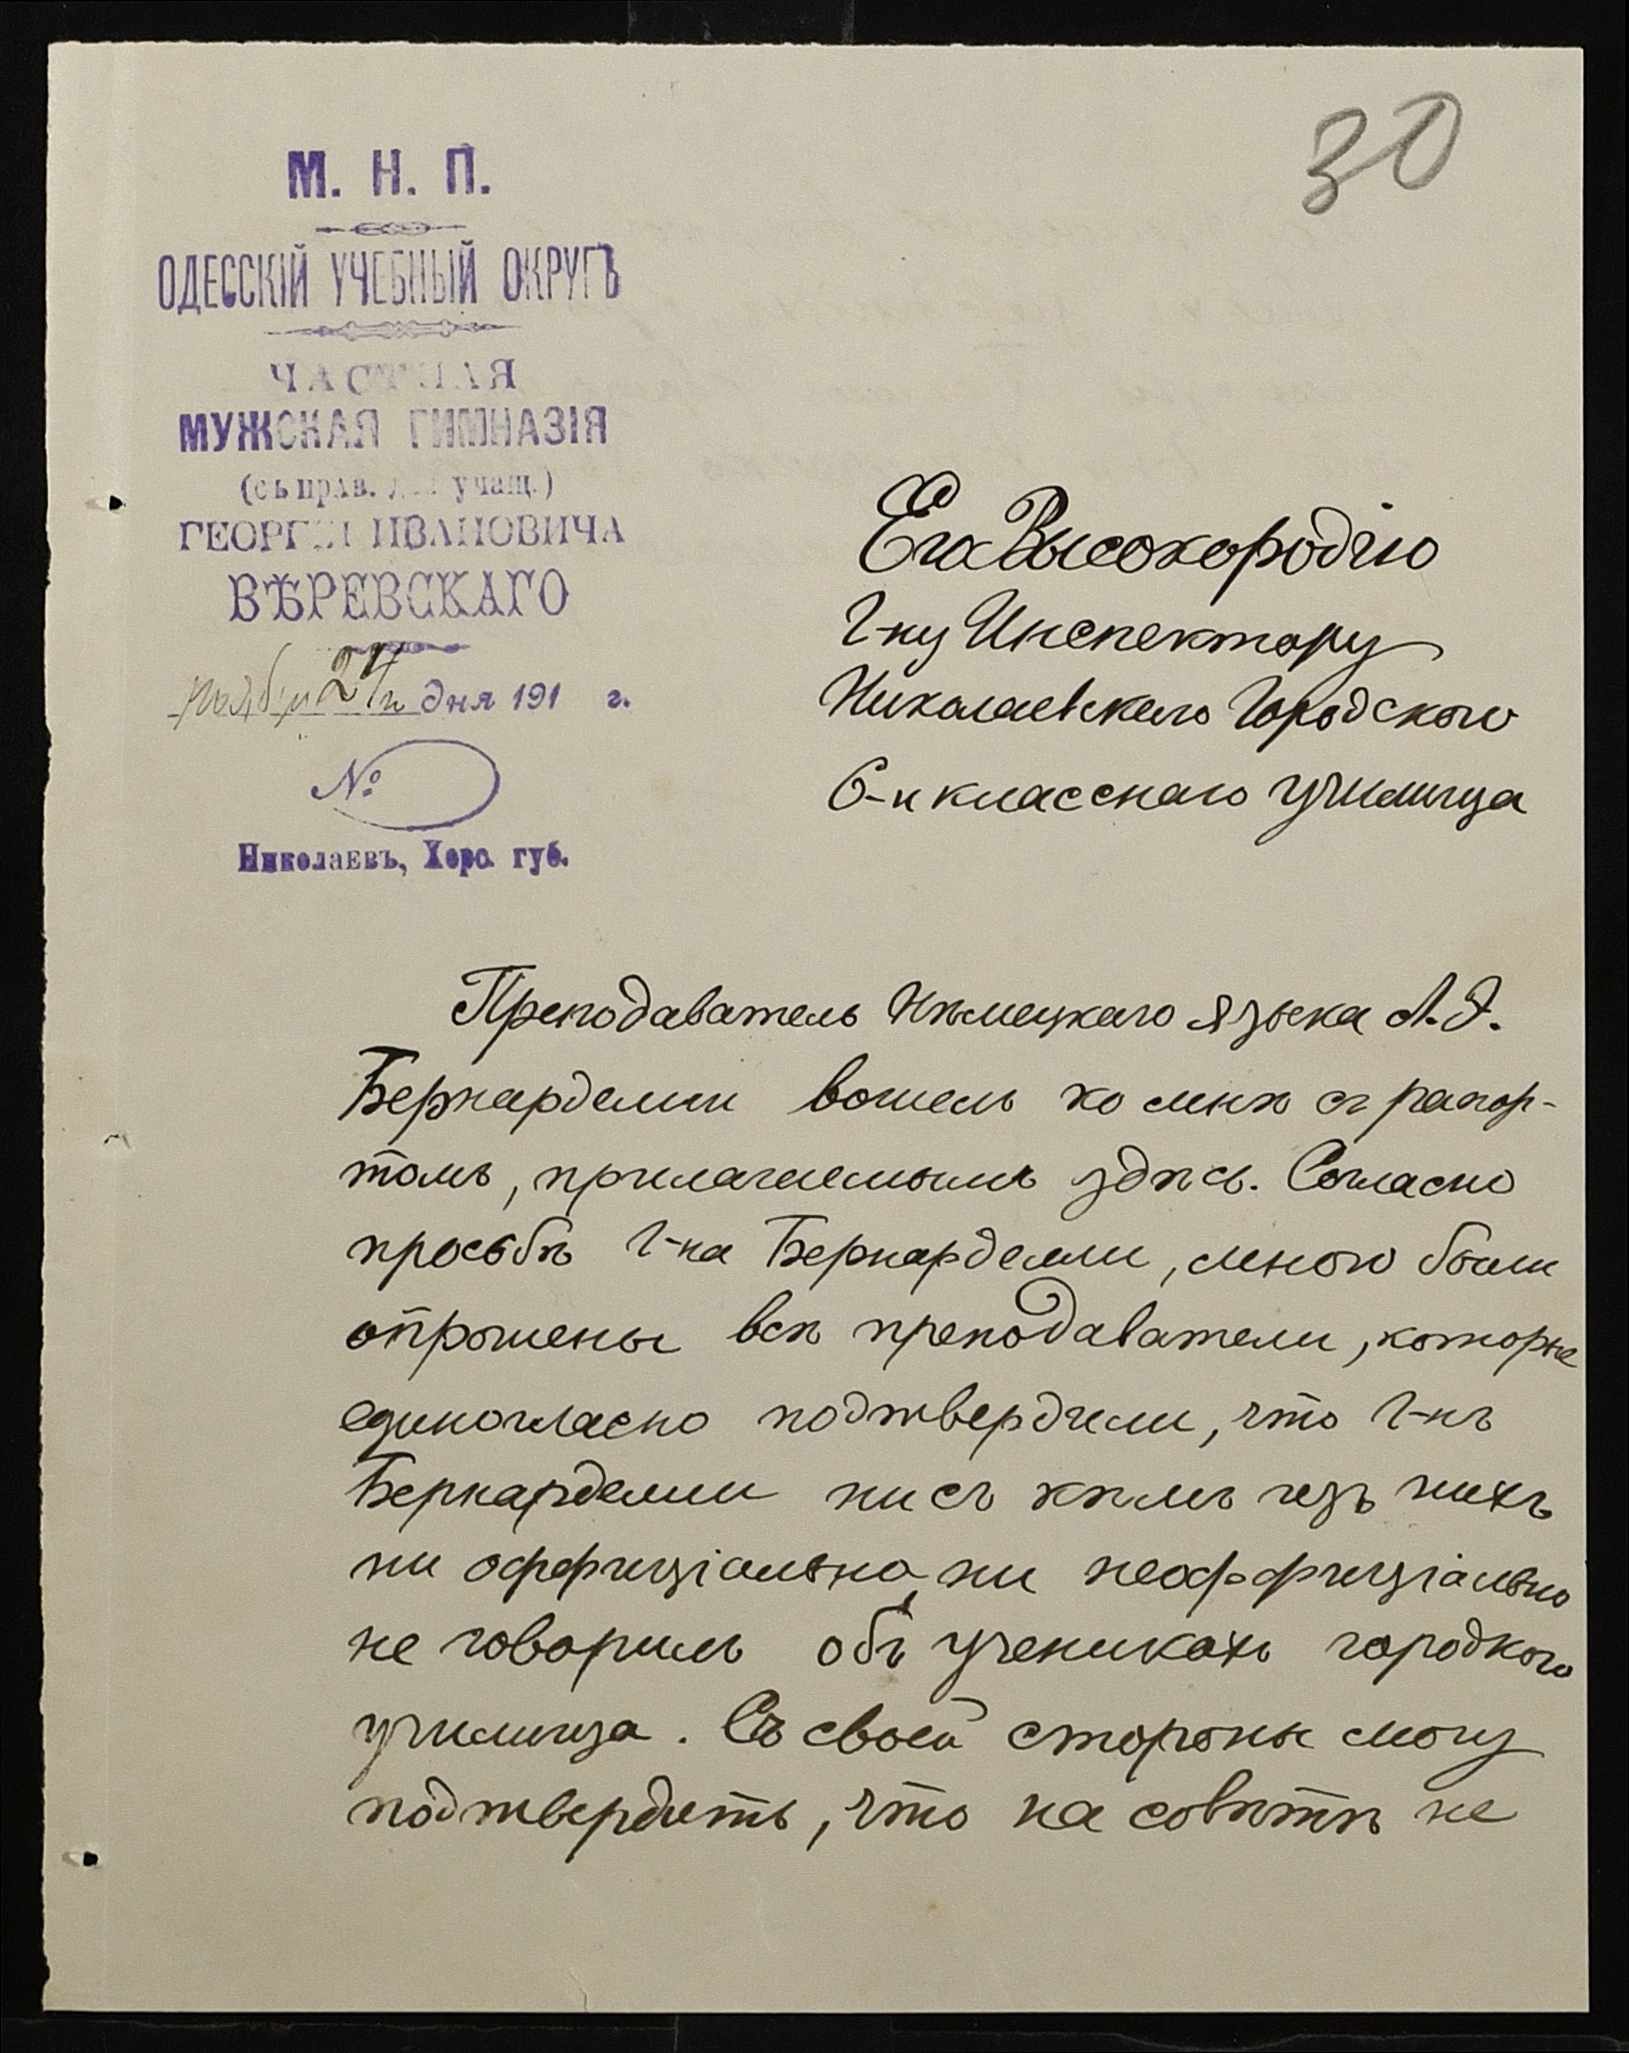 30
М. Н. П.
ОДЕССКІЙ УЧЕБНЫЙ ОКРУГЪ
ЧАСТНАЯ
МУЖСКАЯ ГИМНАЗІЯ
(съ прав. для учащ.)
ГЕОРГІЯ ИВАНОВИЧА
ВѢРЕВСКАГО
ноября 24 дня 191 г.
№
Николаевъ, Херс. губ.
Его Высокородію
Г-ну Инспектору
Николаевскаго Городского
6-и класснаго училища
Преподаватель Нѣмецкаго языка А. Э.
Бернарделли вошелъ ко мнѣ съ рапор-
томъ, прилагаемымъ здѣсь. Согласно
просьбѣ г-на Бернарделли, мною были
опрошены всѣ преподаватели, которые
единогласно подтвердили, что г-нъ
Бернарделли ни съ кѣмъ изъ нихъ
ни оффиціально, ни неоффиціально
не говорилъ объ ученикахъ городкого
училища. Съ своей стороны могу
подтвердить, что на совѣтѣ не